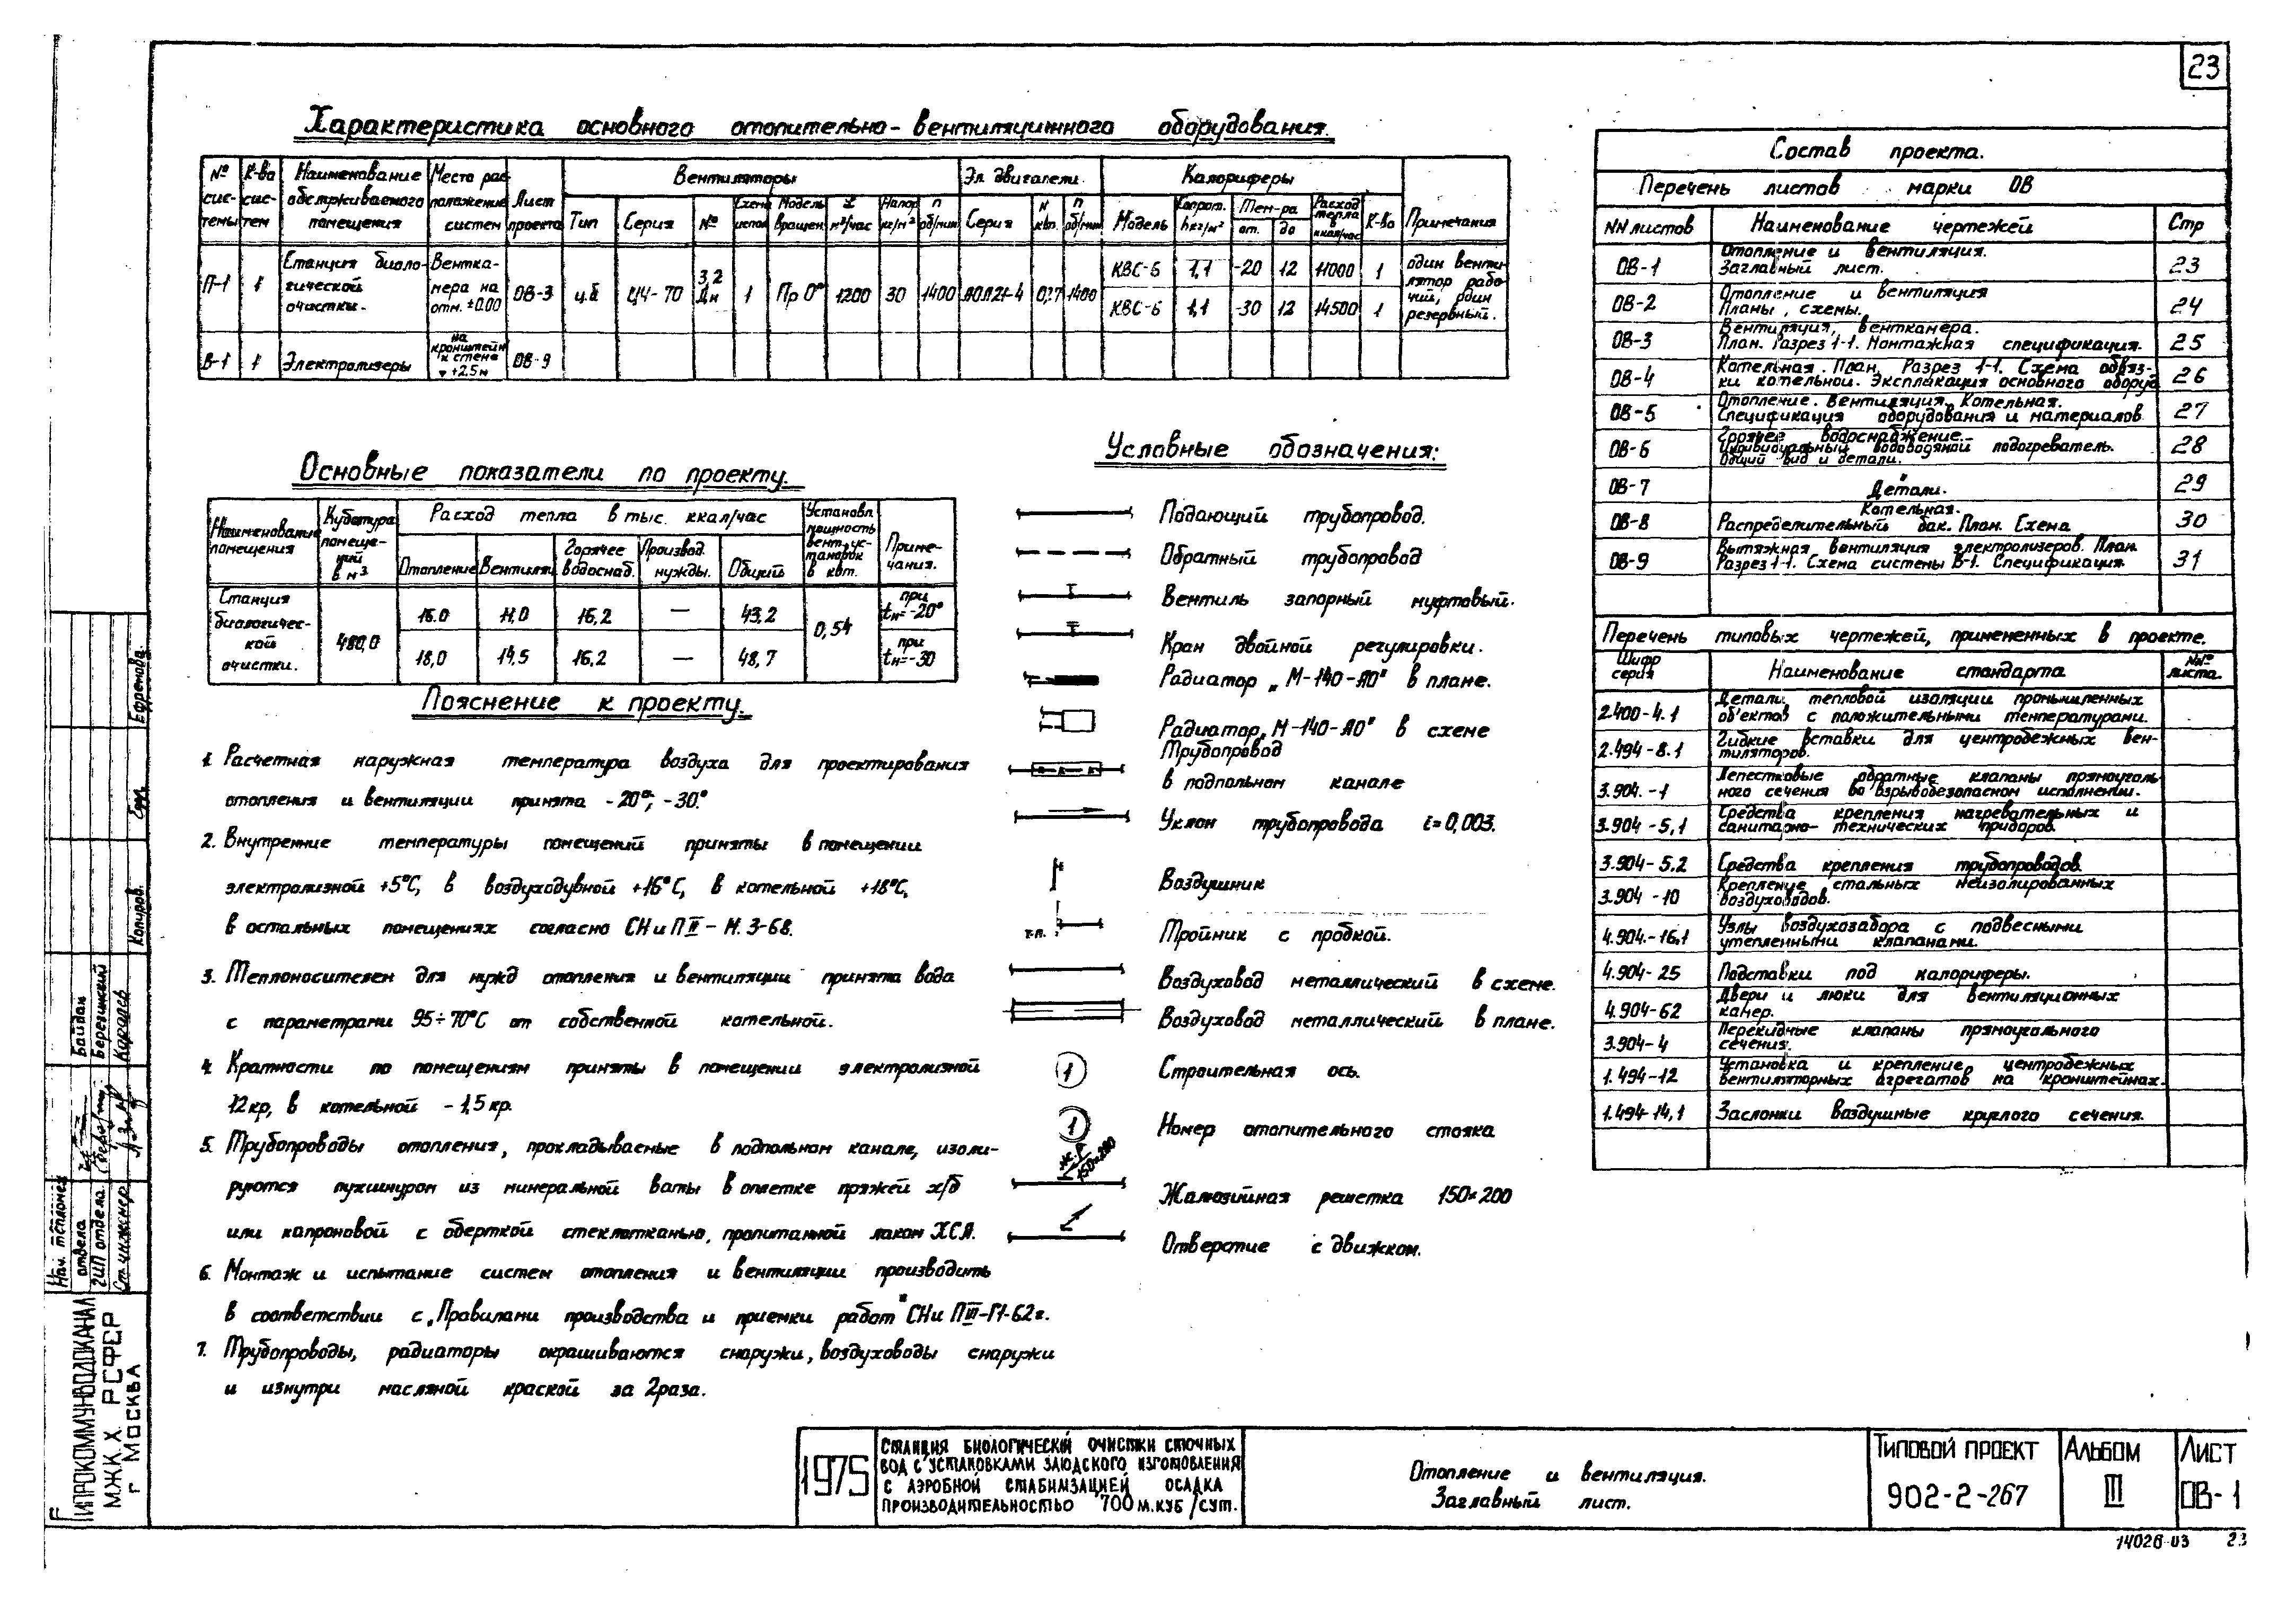 23
Характеристика основного отопительно-вентиляционного оборудования.
№ системы К-во систем Наименование обслуживаемого помещения Место расположение систем Лист проекта Вентиляторы Эл. двигатели Калориферы Примечания
Тип Серия № Схема испол Модель вращен. L м³/час Напор кг/м² n об/мин Серия N квт. n об/мин Модель Сопрот. h кг/м² Тем-ра от. до Расход тепла в ккал/час К-во
П-1 1 Станция биологической очистки. Венткамера на отм. ±0.00 ОВ-3 ц.б Ц4-70 3,2 1 Пр 0° 1200 30 1400 АОЛ21-4 0,27 1400 КВС-Б 1,1 -20 12 11000 1 один вентилятор рабочий, один резервный.
КВС-Б 1,1 -30 12 14500 1
В-1 1 Электролизеры на кронштейн к стене +2.5м ОВ-9
Основные показатели по проекту.
Наименование помещения Кубатура помещений в м³ Расход тепла в тыс. ккал/час Установл. мощность вент. установок в квт. Примечания.
Отопление Вентиляц Горячее водоснаб. Производ. нужды. Общий
Станция биологической очистки. 480,0 16.0 11,0 16,2 — 43,2 0,54 при tн=-20°
18,0 14,5 16,2 — 48,7 при tн=-30
Пояснение к проекту.
1. Расчетная наружная температура воздуха для проектирования
отопления и вентиляции принята -20°, -30°.
2. Внутренние температуры помещений приняты в помещении
электролизной +5°С, в воздуходувной +16°С, в котельной +18°С,
в остальных помещениях согласно СНиП II-М. 3-68.
3. Теплоносителем для нужд отопления и вентиляции принята вода
с параметрами 95÷70°С от собственной котельной.
4. Кратности по помещениям приняты в помещении электролизной
12 кр, в котельной - 1,5 кр.
5. Трубопроводы отопления, прокладываемые в подпольном канале, изоли-
руются пухшнуром из минеральной ваты в оплетке пряжей х/б
или капроновой с оберткой стеклотканью, пропитанной лаком ХСЛ.
6. Монтаж и испытание систем отопления и вентиляции производить
в соответствии с „Правилами производства и приемки работ" СНиП III-Г1-62г.
7. Трубопроводы, радиаторы окрашиваются снаружи, воздуховоды снаружи
и изнутри масляной краской за 2 раза.
Условные обозначения:
Подающий трубопровод.
Обратный трубопровод
Вентиль запорный муфтовый.
Кран двойной регулировки.
Радиатор „М-140-АО" в плане.
Радиатор „М-140-АО" в схеме
Трубопровод
в подпольном канале
Уклон трубопровода i=0,003.
Воздушник
т.п. Тройник с пробкой.
Воздуховод металлический в схеме.
Воздуховод металлический в плане.
1 Строительная ось.
1 Номер отопительного стояка
ж.р. 150×200
Жалюзийная решетка 150×200
Отверстие с движком.
Состав проекта.
Перечень листов марки ОВ
NN листов Наименование чертежей Стр
ОВ-1 Отопление и вентиляция. Заглавный лист. 23
ОВ-2 Отопление и вентиляция Планы, схемы. 24
ОВ-3 Вентиляция, венткамера. План. Разрез 1-1. Монтажная спецификация. 25
ОВ-4 Котельная. План, Разрез 1-1. Схема обвязки котельной. Экспликация основного оборуд 26
ОВ-5 Отопление. Вентиляция. Котельная. Спецификация оборудования и материалов 27
ОВ-6 Горячее водоснабжение. Индивидуальный водоводяной подогреватель. Общий вид и детали. 28
ОВ-7 Детали. 29
ОВ-8 Котельная. Распределительный бак. План. Схема 30
ОВ-9 Вытяжная вентиляция электролизеров. План. Разрез 1-1. Схема системы В-1. Спецификация. 31
Перечень типовых чертежей, примененных в проекте.
Шифр серия Наименование стандарта №№ листа.
2.400-4.1 Детали тепловой изоляции промышленных объектов с положительными температурами.
2.494-8.1 Гибкие вставки для центробежных вентиляторов.
3.904.-1 Лепестковые обратные клапаны прямоугольного сечения во взрывобезопасном исполнении.
3.904-5,1 Средства крепления нагревательных и санитарно-технических приборов.
3.904-5.2 Средства крепления трубопроводов.
3.904-10 Крепление стальных неизолированных воздуховодов.
4.904.-16.1 Узлы воздухозабора с подвесными утепленными клапанами.
4.904-25 Подставки под калориферы.
4.904-62 Двери и люки для вентиляционных камер.
3.904-4 Перекидные клапаны прямоугольного сечения.
1.494-12 Установка и крепление центробежных вентиляторных агрегатов на кронштейнах.
1.494-14,1 Заслонки воздушные круглого сечения.
Ефремова.
Копиров.
Байдак
Березинский
Королев
Нач. тепломех отдела
ГИП отдела
Ст. инженер
Гипрокоммунводоканал
МЖКХ РСФСР
г Москва
1975
Станция биологической очистки сточных
вод с установками заводского изготовления
с аэробной стабилизацией осадка
производительностью 700 м.куб/сут.
Отопление и вентиляция.
Заглавный лист.
Типовой проект
902-2-267
Альбом
III
Лист
ОВ-1
14026-03 23